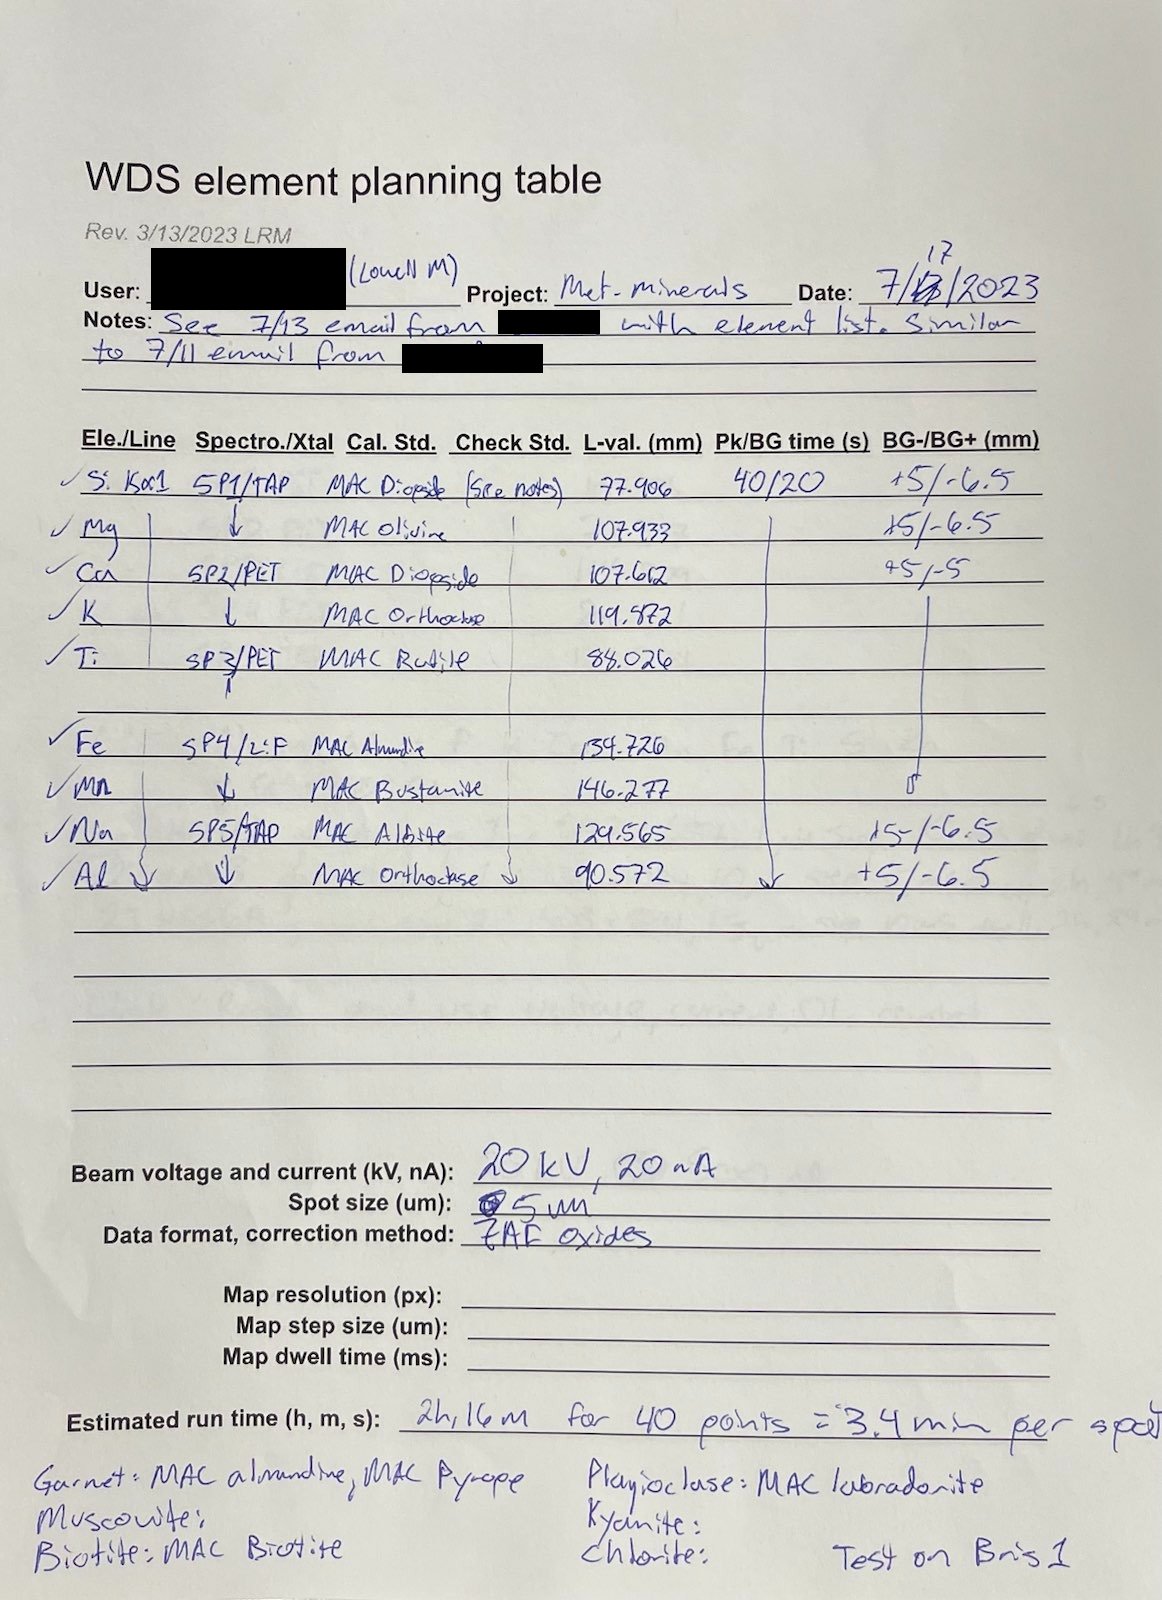 WDS element planning table
Rev. 3/13/2023 LRM
User: (Lowell M) Project: Met. minerals Date: 7/17/2023
Notes: See 7/13 email from with element list. Similar
to 7/11 email from
Ele./Line Spectro./Xtal Cal. Std. Check Std. L-val. (mm) Pk/BG time (s) BG-/BG+ (mm)
✓ Si Kα1 SP1/TAP MAC Diopside (See notes) 77.906 40/20 +5/-6.5
✓ Mg ↓ MAC Olivine 107.933 +5/-6.5
✓ Ca SP2/PET MAC Diopside 107.612 +5/-5
✓ K ↓ MAC Orthoclase 119.872
✓ Ti SP3/PET MAC Rutile 88.026
✓ Fe SP4/LiF MAC Almandine 134.726
✓ Mn ↓ MAC Bustamite 146.277
✓ Na SP5/TAP MAC Albite 129.565 +5/-6.5
✓ Al ↓ ↓ MAC Orthoclase ↓ 90.572 ↓ +5/-6.5
Beam voltage and current (kV, nA): 20 kV, 20 nA
Spot size (um): 5 um
Data format, correction method: ZAF oxides
Map resolution (px):
Map step size (um):
Map dwell time (ms):
Estimated run time (h, m, s): 2h, 16m for 40 points = 3.4 min per spot
Garnet: MAC almandine, MAC Pyrope Plagioclase: MAC labradorite
Muscovite: Kyanite:
Biotite: MAC Biotite Chlorite: Test on Bris 1